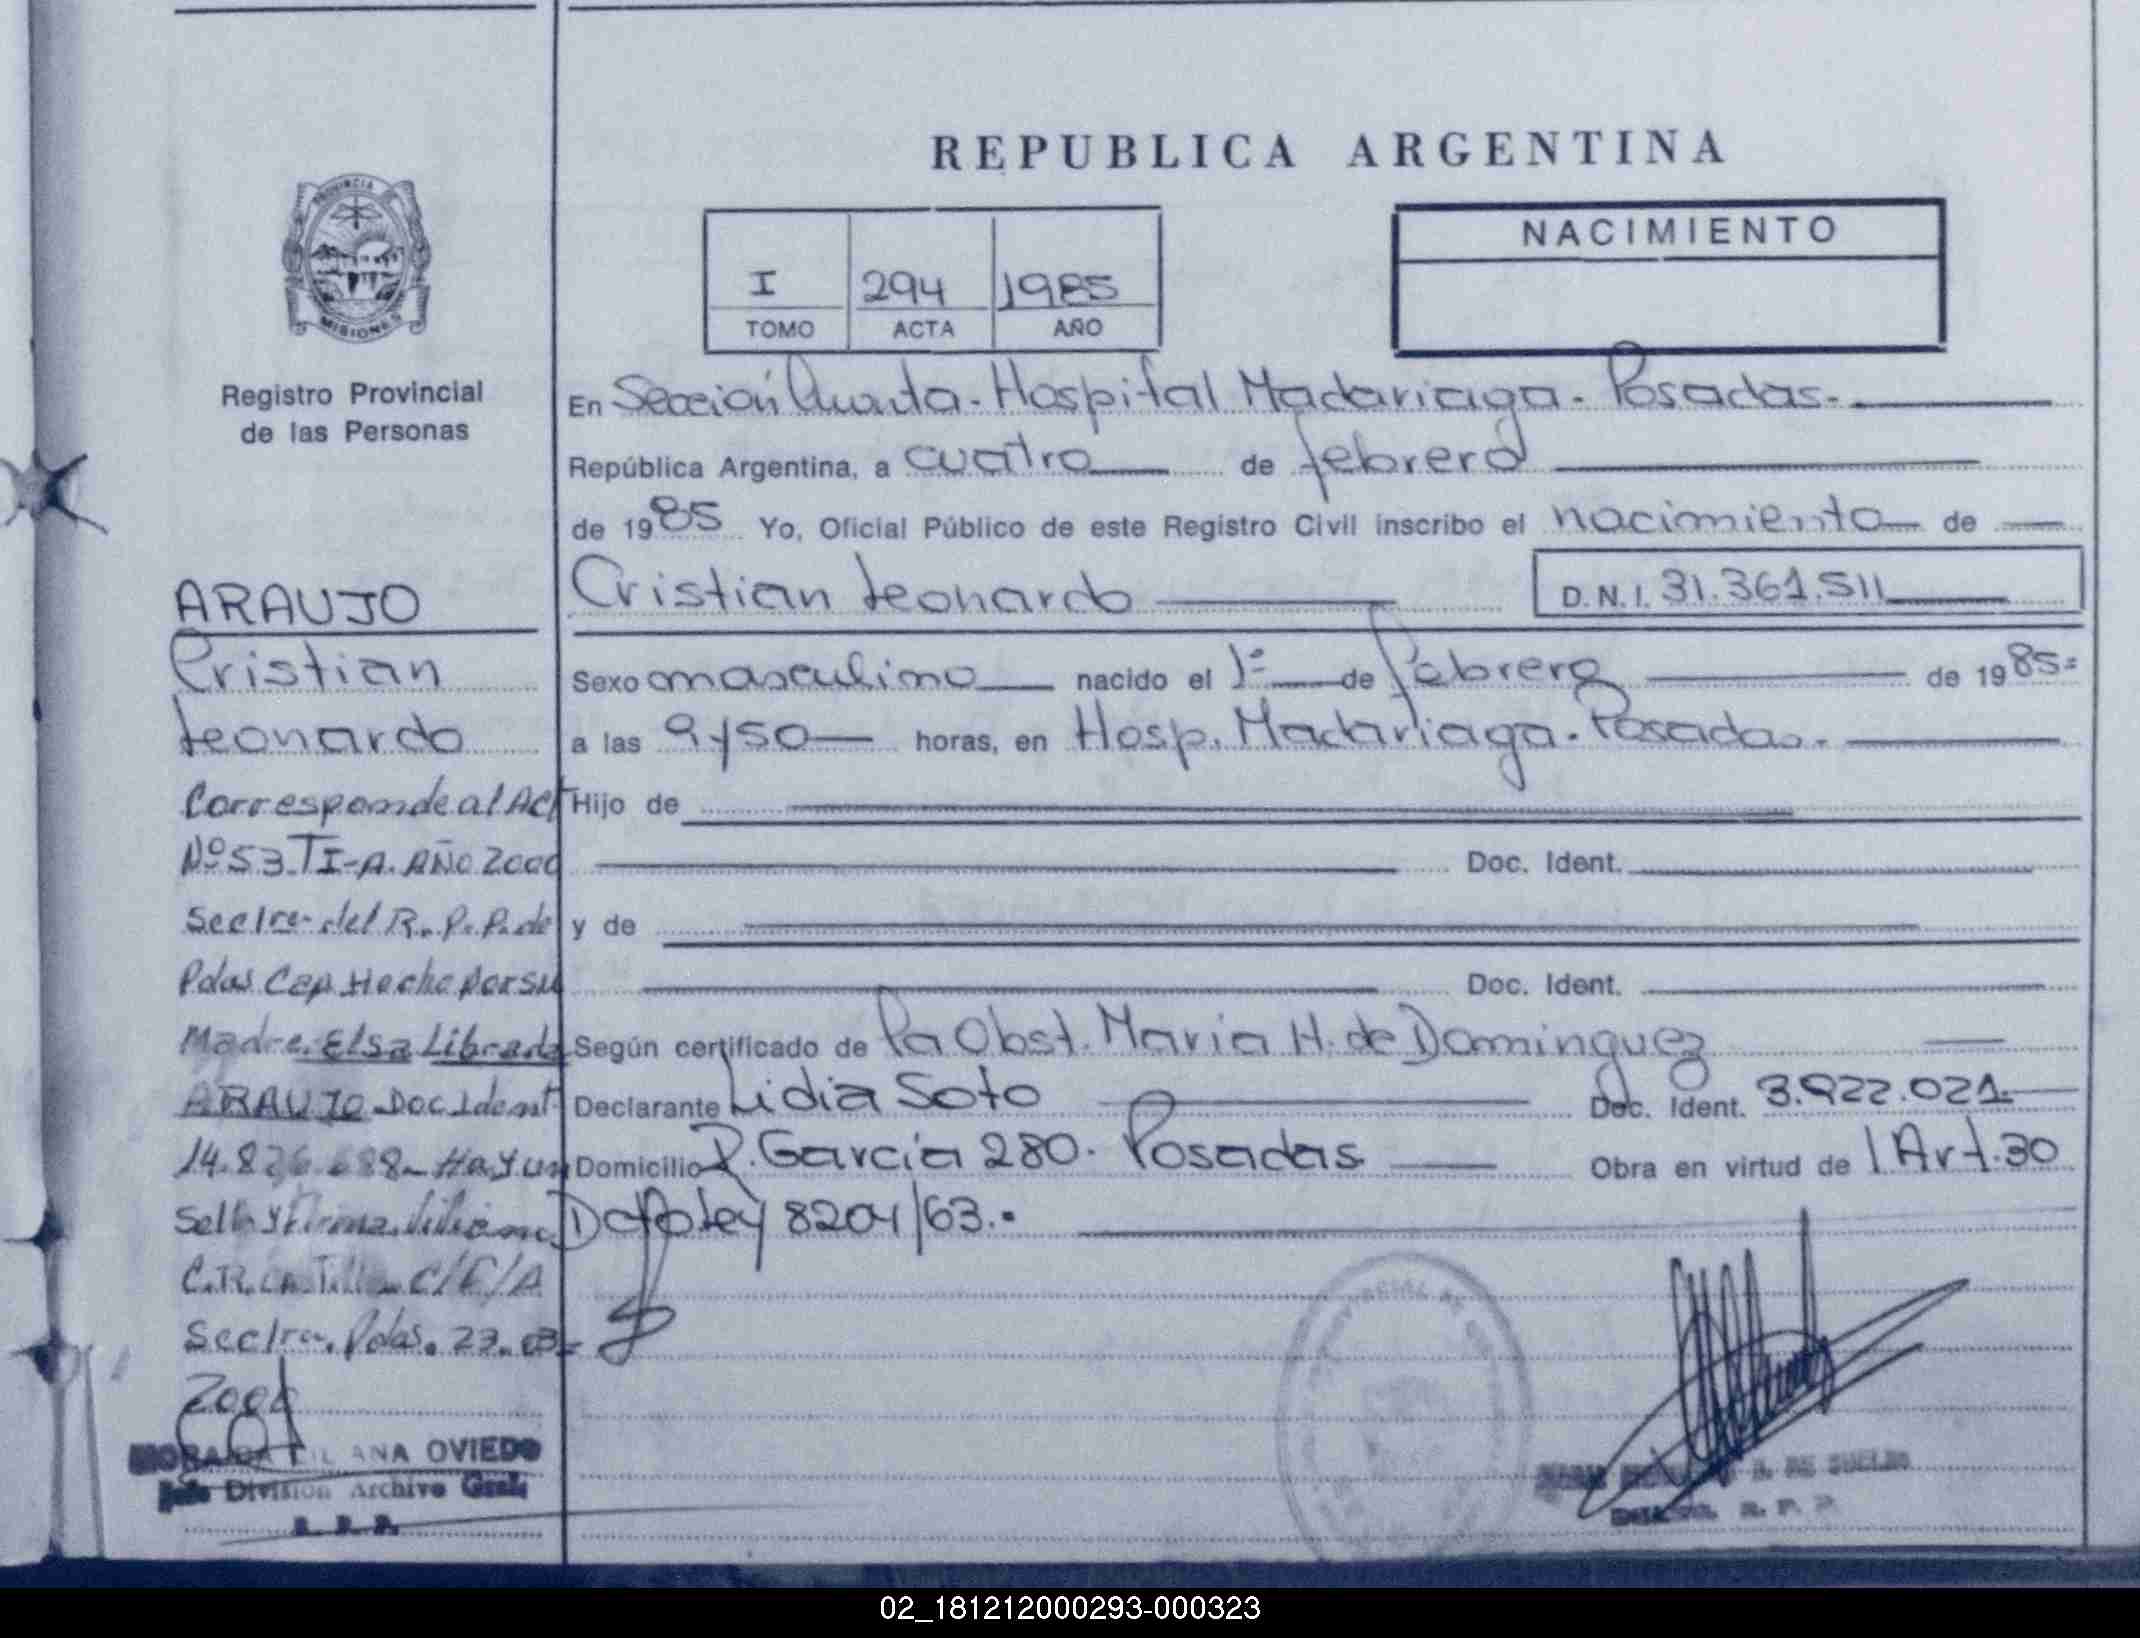 REPUBLICA ARGENTINA
PROVINCIA
MISIONES
Registro Provincial
de las Personas
I 294 1985
TOMO ACTA AÑO
NACIMIENTO
En Sección Quarta - Hospital Madariaga - Posadas.
República Argentina, a cuatro de febrero
de 1985 Yo, Oficial Público de este Registro Civil inscribo el nacimiento de
Cristian Leonardo D.N.I. 31.361.511
Sexo masculino nacido el 1º de febrero de 1985=
a las 9 y 50 horas, en Hosp. Madariaga - Posadas.
Hijo de
Doc. Ident.
y de
Doc. Ident.
Según certificado de la Obst. Maria H. de Dominguez
Declarante Lidia Soto Doc. Ident. 3.922.021.
Domicilio P. García 280. Posadas Obra en virtud de l Art. 30
Ley 8204/63.-
ARAUJO
Cristian
Leonardo
Corresponde al Act
Nº 53. TI-A. AÑO 2000
Secc 1ra- del R. P. P. de
Pdas Cap Hecho por su
Madre. Elsa Librada
ARAUJO Doc Ident
14.8 Hay un
Sello y Firma. Liliana
C.R. C/E/A
Secc 1ra. Pdas. 27.03-
200
ANA OVIEDO
Jefe División Archivo Gral.
R. P. P.
R. P. P.
02_181212000293-000323